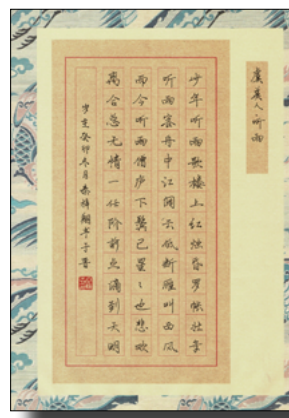 虞美人 听雨
少年听雨歌楼上红烛昏罗帐壮年
听雨客舟中江阔云低断雁叫西风
而今听雨僧庐下鬓已星〻也悲欢
离合总无情一任阶前点滴到天明
岁在癸卯冬月